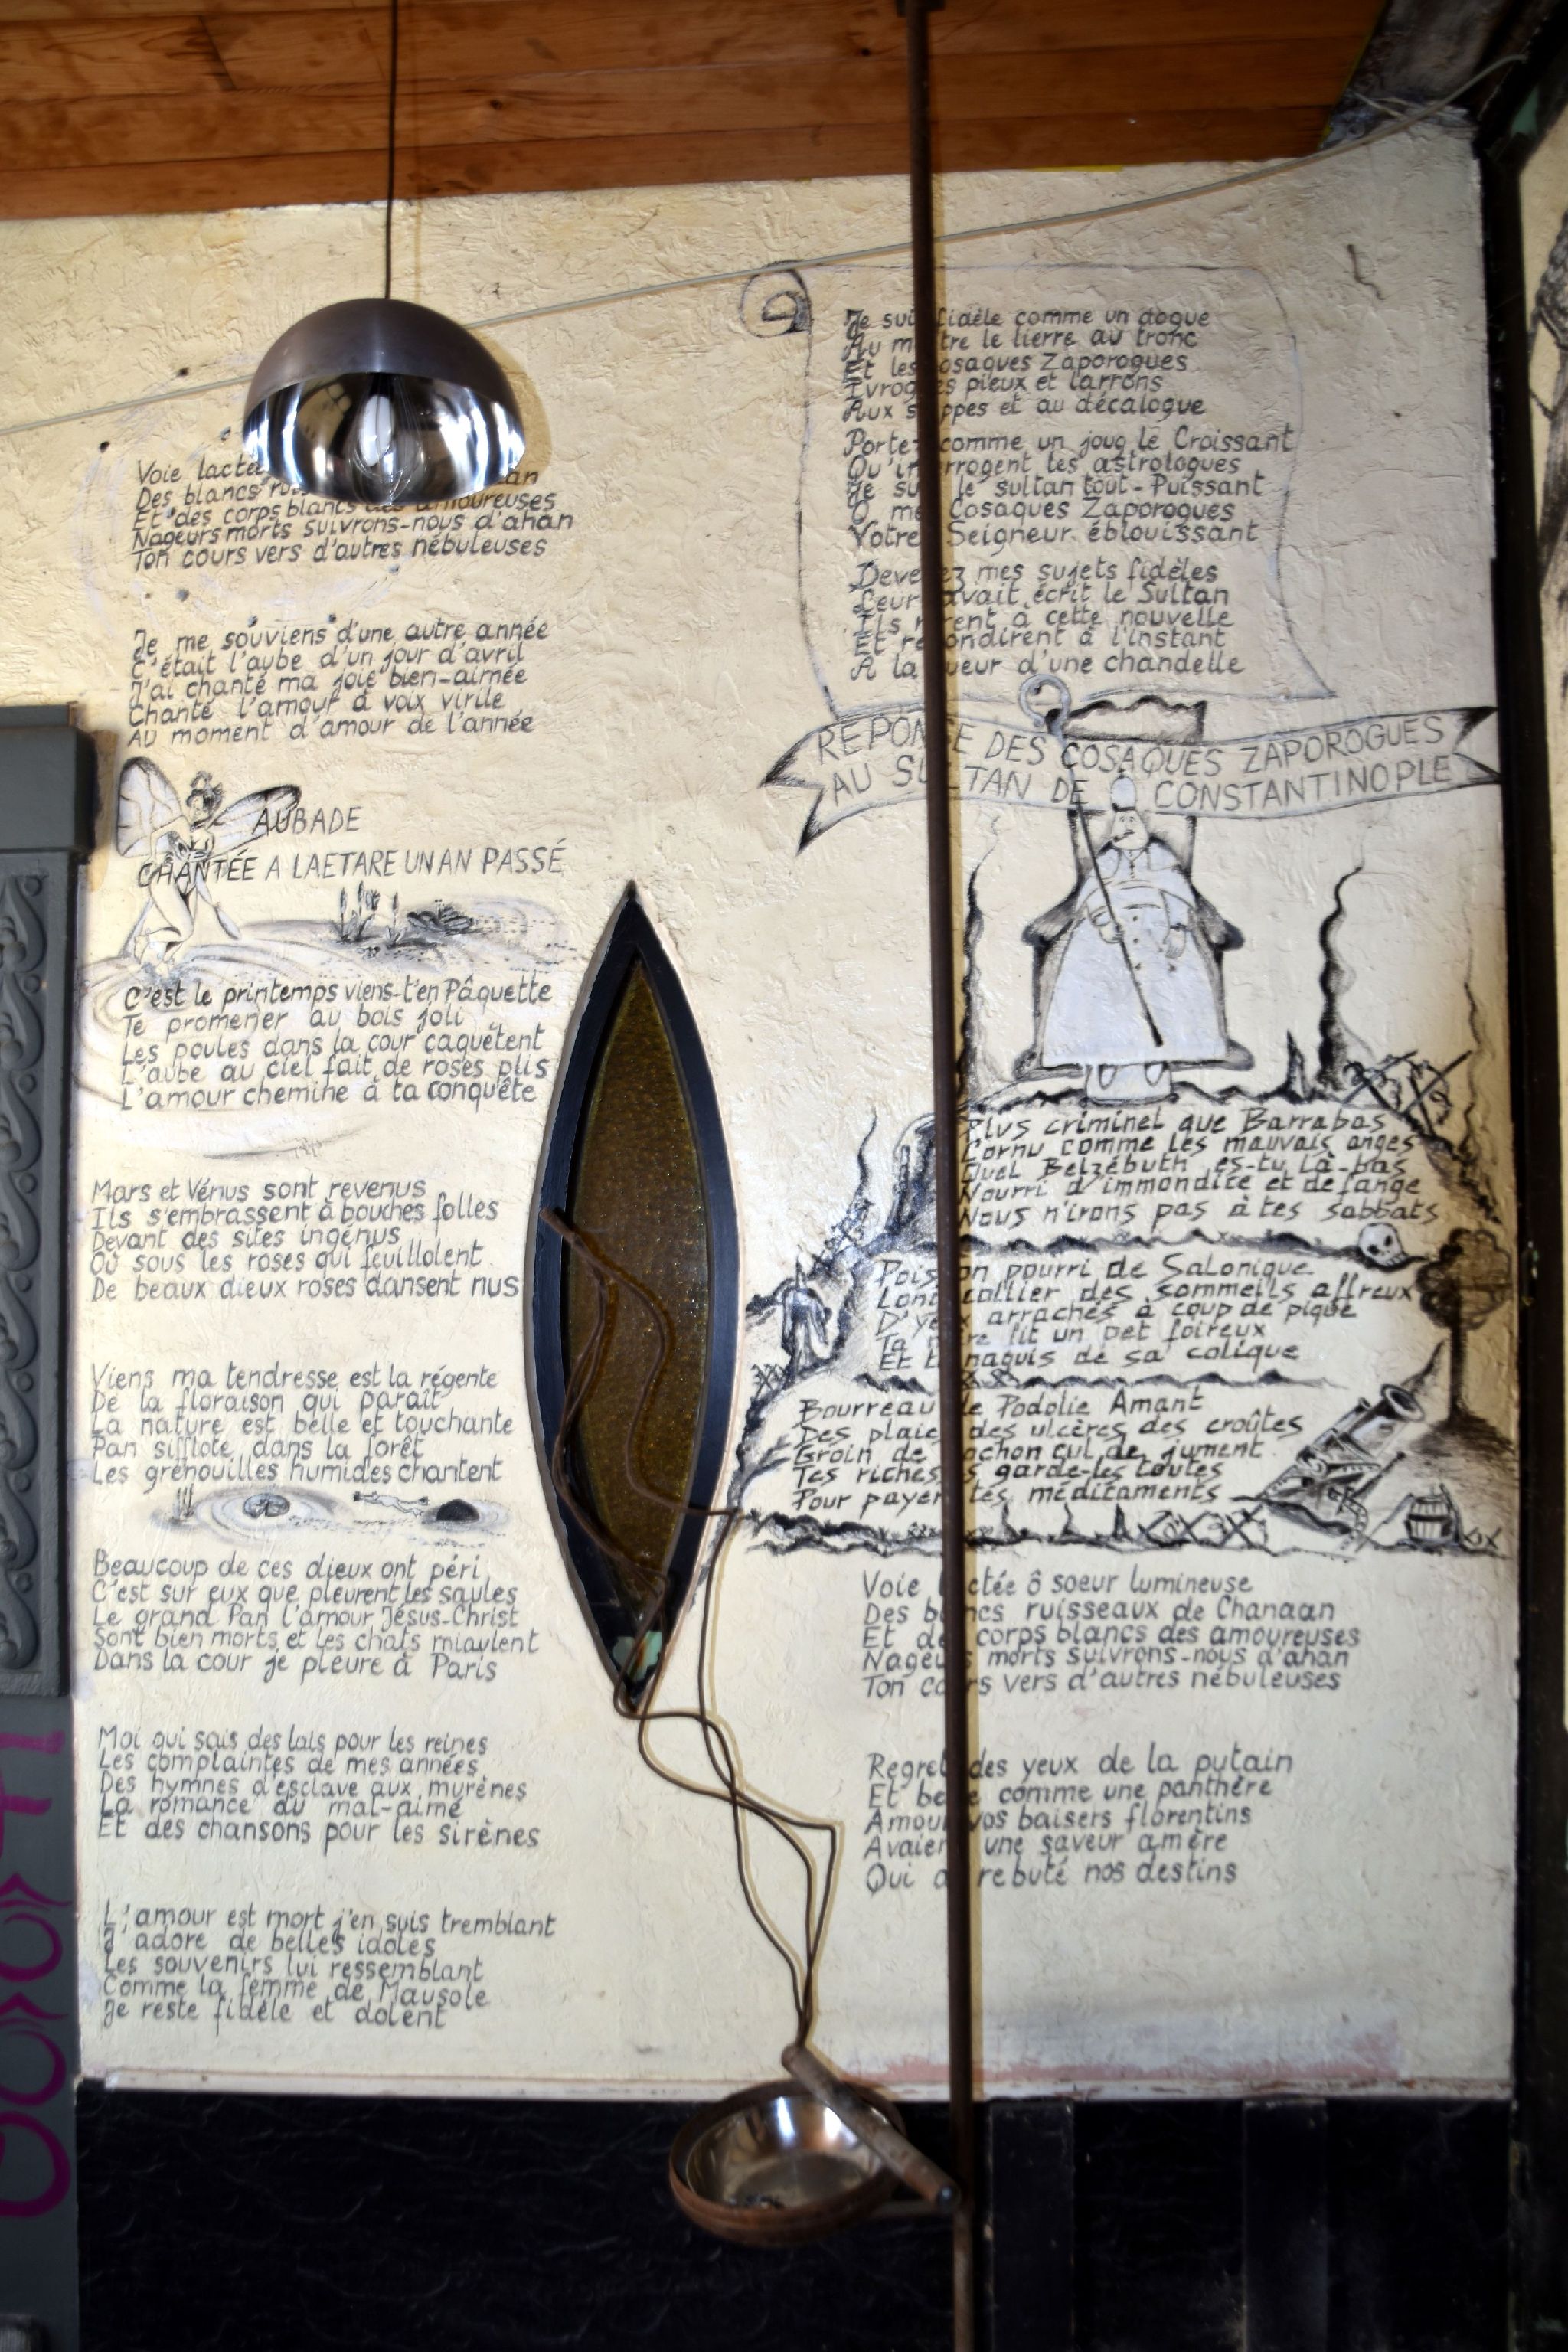 Voie lactée
Des blancs
Et des corps blancs des amoureuses
Nageurs morts suivrons-nous d'ahan
Ton cours vers d'autres nébuleuses
Je me souviens d'une autre année
C'était l'aube d'un jour d'avril
J'ai chanté ma joie bien-aimée
Chanté l'amour à voix virile
Au moment d'amour de l'année
AUBADE
CHANTÉE A LAETARE UN AN PASSÉ
C'est le printemps viens-t'en Pâquette
Te promener au bois joli
Les poules dans la cour caquètent
L'aube au ciel fait de roses plis
L'amour chemine à ta conquête
Mars et Vénus sont revenus
Ils s'embrassent à bouches folles
Devant des sites ingénus
Où sous les roses qui feuillolent
De beaux dieux roses dansent nus
Viens ma tendresse est la régente
De la floraison qui paraît
La nature est belle et touchante
Pan sifflote dans la forêt
Les grenouilles humides chantent
Beaucoup de ces dieux ont péri
C'est sur eux que pleurent les saules
Le grand Pan l'amour Jésus-Christ
Sont bien morts et les chats miaulent
Dans la cour je pleure à Paris
Moi qui sais des lais pour les reines
Les complaintes de mes années
Des hymnes d'esclave aux murènes
La romance du mal-aimé
Et des chansons pour les sirènes
L'amour est mort j'en suis tremblant
J'adore de belles idoles
Les souvenirs lui ressemblant
Comme la femme de Mausole
Je reste fidèle et dolent
Je suis fidèle comme un dogue
Au maître le lierre au tronc
Et les Cosaques Zaporogues
Ivrognes pieux et larrons
Aux steppes et au décalogue
Portez comme un joug le Croissant
Qu'interrogent les astrologues
Je suis le sultan tout-Puissant
O mes Cosaques Zaporogues
Votre Seigneur éblouissant
Devenez mes sujets fidèles
Leur avait écrit le Sultan
Ils rirent à cette nouvelle
Et répondirent à l'instant
A la lueur d'une chandelle
REPONSE DES COSAQUES ZAPOROGUES
AU SULTAN DE CONSTANTINOPLE
Plus criminel que Barrabas
Cornu comme les mauvais anges
Quel Belzébuth es-tu là-bas
Nourri d'immondice et de fange
Nous n'irons pas à tes sabbats
Poisson pourri de Salonique
Long collier des sommeils affreux
D'yeux arrachés à coup de pique
Ta mère fit un pet foireux
Et tu naquis de sa colique
Bourreau de Podolie Amant
Des plaies des ulcères des croûtes
Groin de cochon cul de jument
Tes richesses garde-les toutes
Pour payer tes médicaments
Voie lactée ô soeur lumineuse
Des blancs ruisseaux de Chanaan
Et des corps blancs des amoureuses
Nageurs morts suivrons-nous d'ahan
Ton cours vers d'autres nébuleuses
Regret des yeux de la putain
Et belle comme une panthère
Amour vos baisers florentins
Avaient une saveur amère
Qui a rebuté nos destins